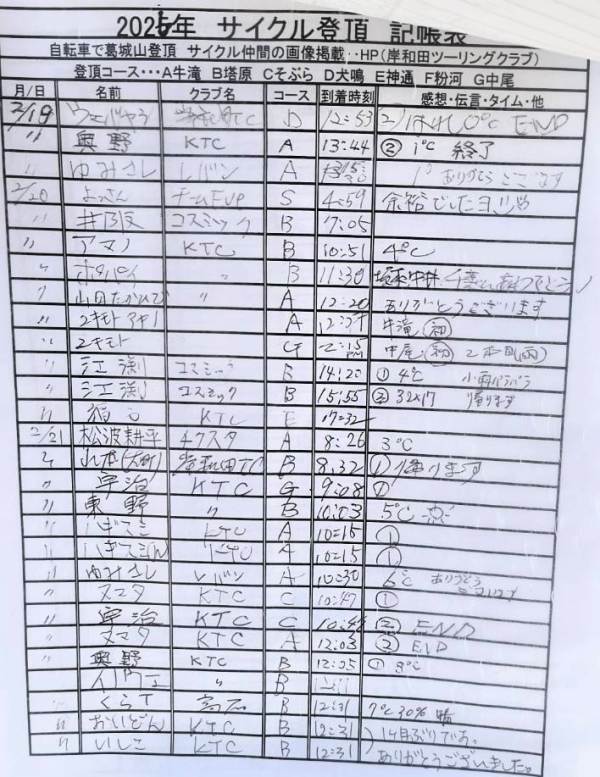 2026年 サイクル登頂 記帳表
自転車で葛城山登頂 サイクル仲間の画像掲載‥HP(岸和田ツーリングクラブ)
登頂コース･･･A牛滝 B塔原 Cそぶら D犬鳴 E神通 F粉河 G中尾
月/日 名前 クラブ名 コース 到着時刻 感想・伝言・タイム・他
2/19 D 12:53 はれ 0℃ END
〃 奥野 KTC A 13:44 ② 1℃ 終了
〃 ゆみさし レバン A 1° ありがとうございます
2/20 よっさん チームFUP S 4:59 余裕でしたヨ
〃 井阪 コスミック B 7:05
〃 アマノ KTC B 10:51 4℃
〃 〃 B 11:30
〃 山田たかひび 〃 A 12:20 ありがとうございます
〃 2キモト アキノ A 牛滝 初
〃 2キモト G 2:15 PM 中尾 初
〃 江渕 コスミック B 14:20 ① 4℃ 小雨パラパラ
〃 江渕 コスミック B 15:55 ② 32×17 帰ります
〃 KTC E 17:32
2/21 松波耕平 4クスタ A 8:26 3℃
〃 岸和田TC B 8:32 ① 帰ります
〃 宇治 KTC G 9:08 ①
〃 東野 〃 B 10:03 5℃
〃 KTC A 10:15 ①
〃 KTC A 10:15 ①
〃 ゆみさし レバン A 10:30 6℃ ありがとう
〃 ヌマタ KTC C 10:47 ①
〃 宇治 KTC C ② END
〃 ヌマタ KTC A 12:03 ② END
〃 奥野 KTC B 12:05 ① 8℃
〃 〃 B
〃 くらT 高石 B 12:31 7℃ 30% 晴
〃 おいどん KTC B 12:31 1ヶ月ぶりです。
〃 いしこ KTC B 12:31 ありがとうございました。